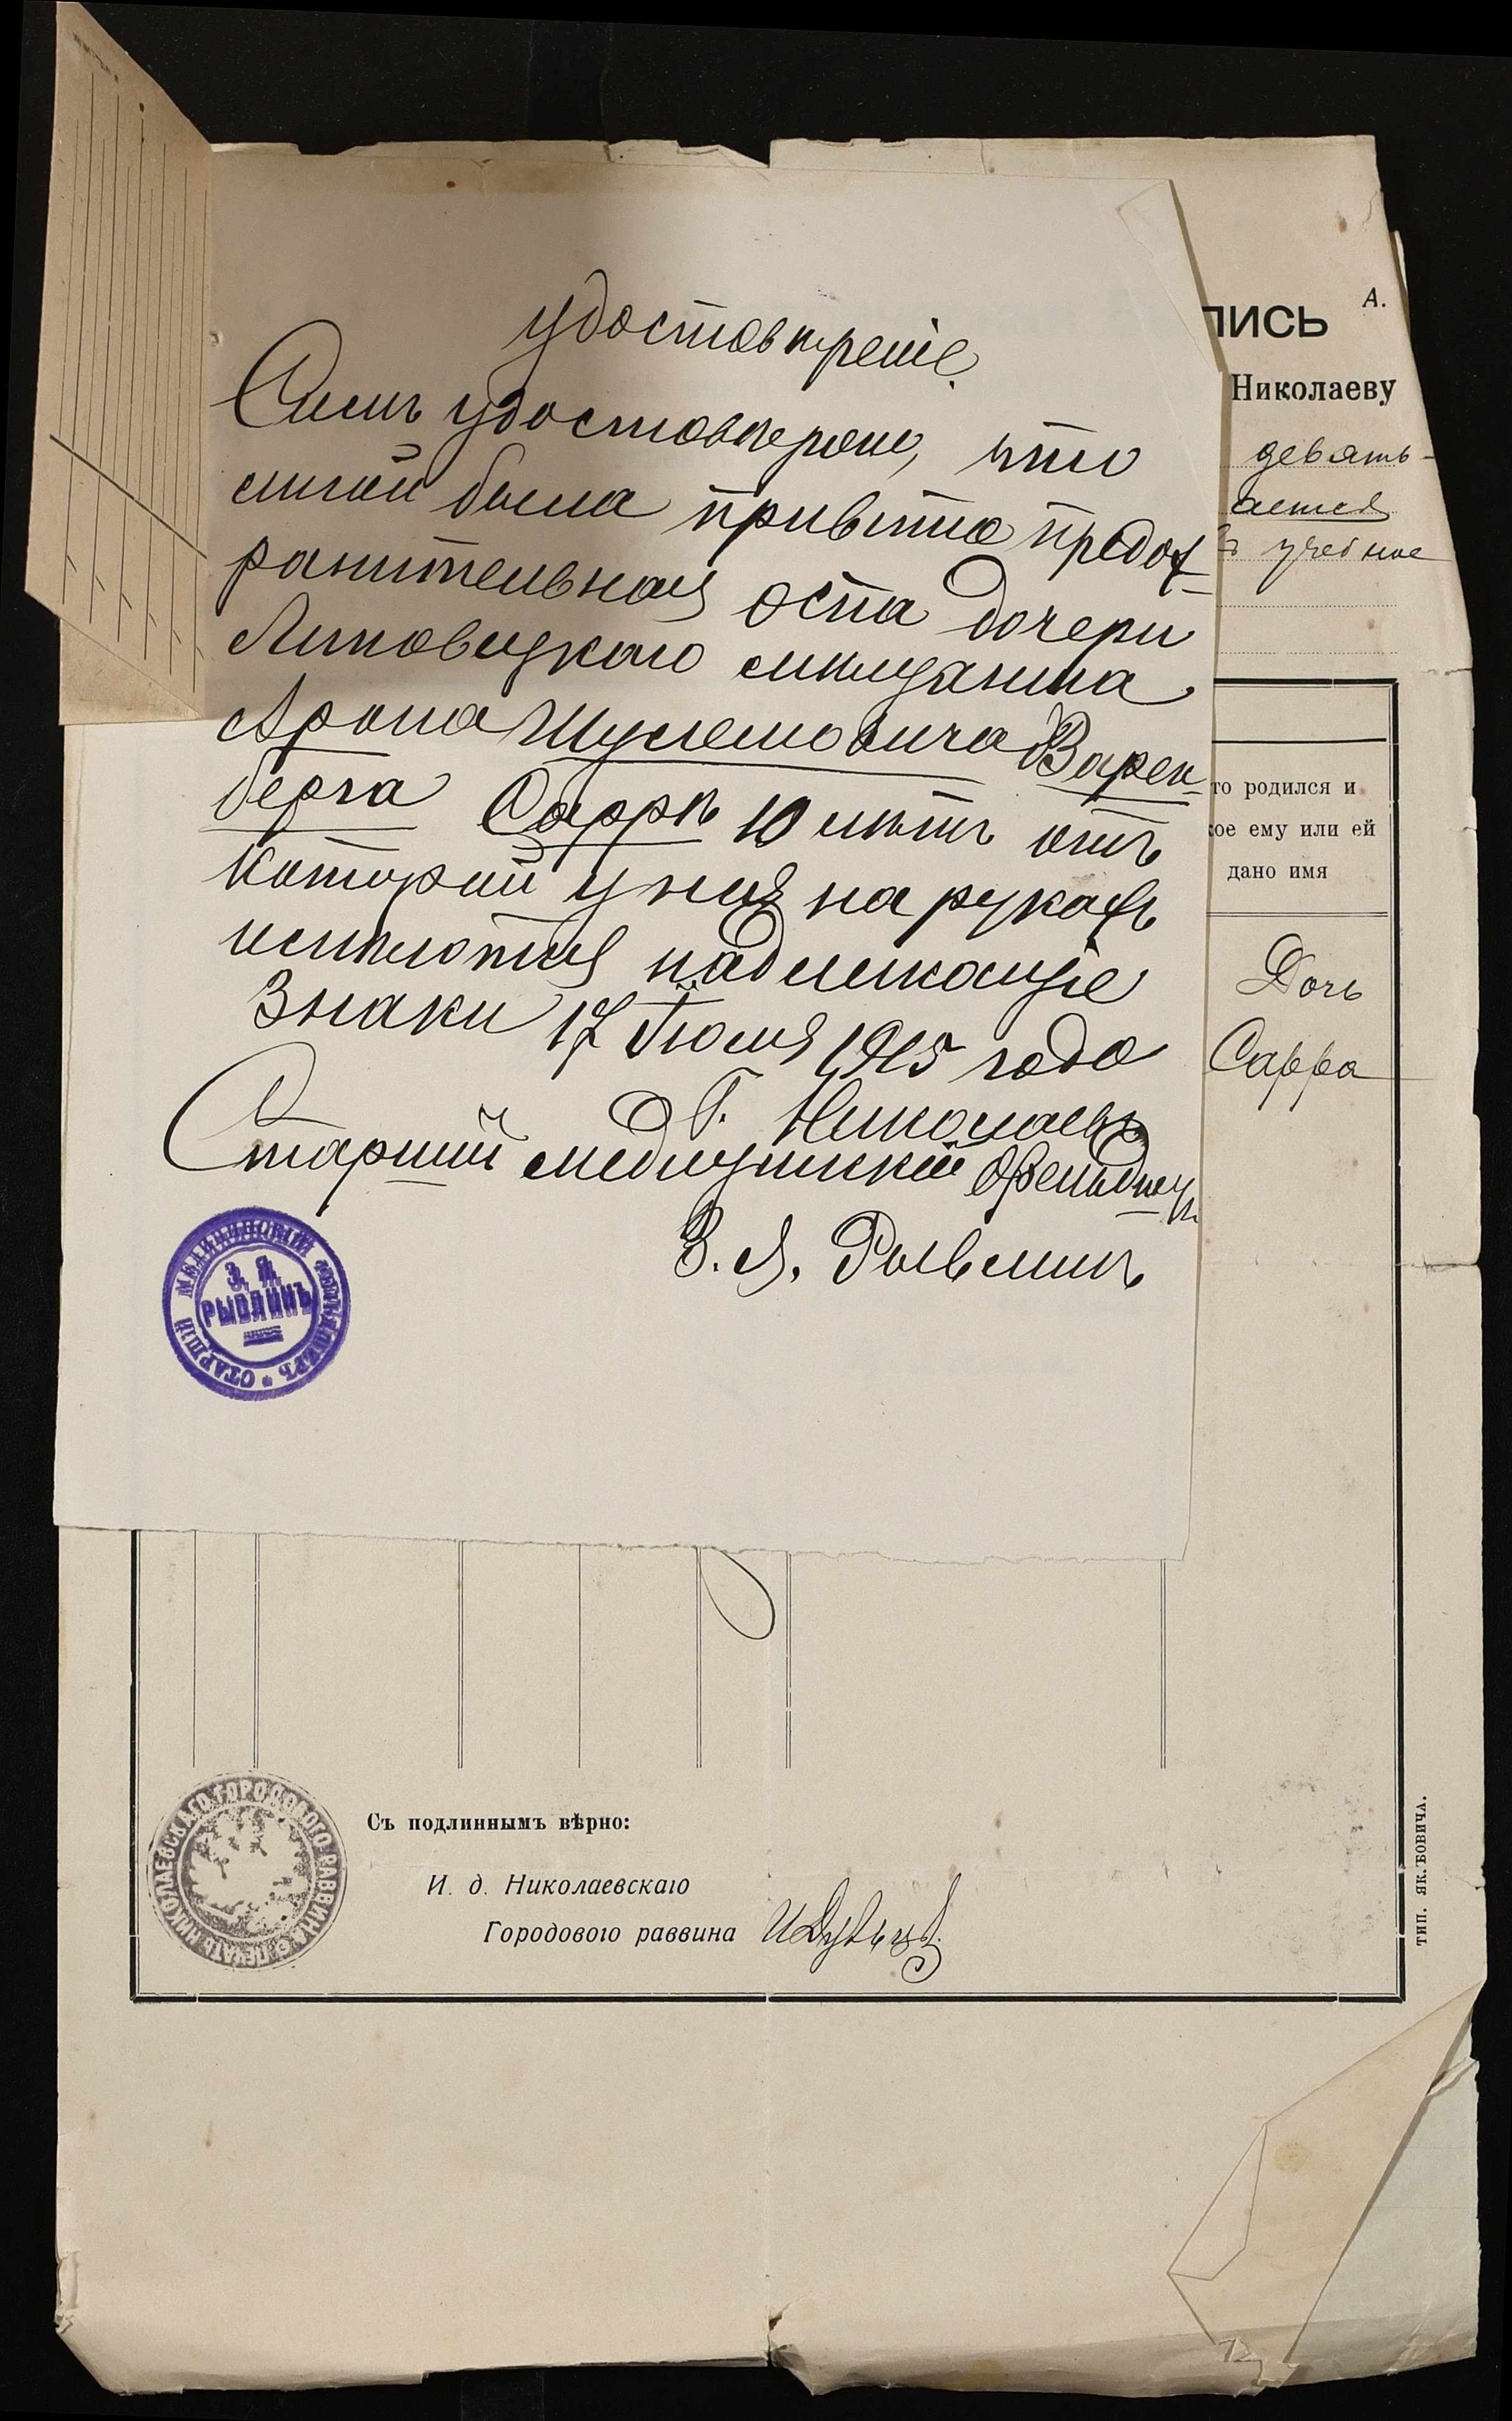 удостовѣреніе.
Симъ удостовѣряю, что
мной была привита предох-
ранительная оспа дочери
Липовецкаго мѣщанина
Арона Шулемовича Варен-
берга Саррѣ 10 лѣтъ отъ
которой у нея на рукахъ
имѣются надлежащіе
знаки 17 Іюля 1915 года
Г. Николаевъ
Старшій медицинскій фельдшеръ
З. Я. Рывлинъ
СТАРШІЙ МЕДИЦИНСКІЙ ФЕЛЬДШЕРЪ
З. Я.
РЫВЛИНЪ
А.
ПИСЬ
Николаеву
девять-
ается
учебное
то родился и
кое ему или ей
дано имя
Дочь
Сарра
Съ подлиннымъ вѣрно:
И. д. Николаевскаго
Городового раввина
ПЕЧАТЬ НИКОЛАЕВСКАГО ГОРОДОВОГО РАВВИНА
ТИП. ЯК. БОВИЧА.